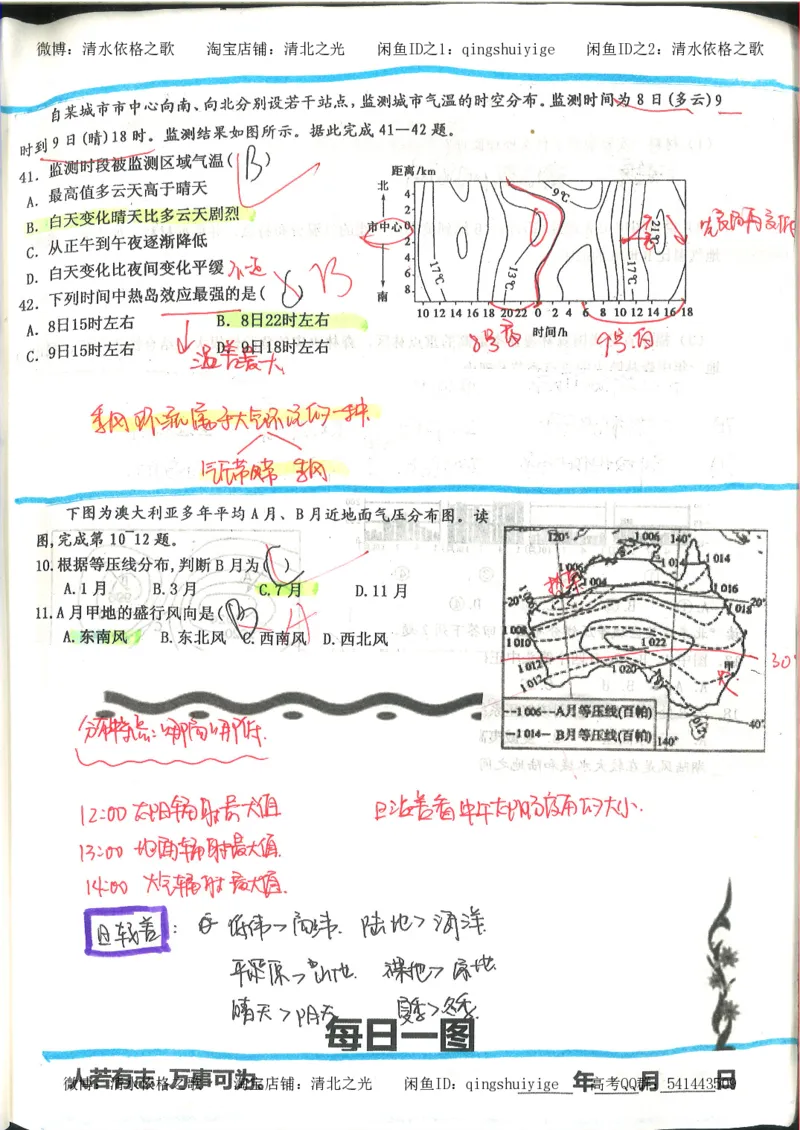 微博：清水依格之歌 淘宝店铺：清北之光 闲鱼ID之1：qingshuiyige 闲鱼ID之2：清水依格之歌
自某城市市中心向南、向北分别设若干站点，监测城市气温的时空分布。监测时间为 8 日(多云)9
时到 9 日(晴)18 时。监测结果如图所示。据此完成 41—42 题。
41．监测时段被监测区域气温( B )
A．最高值多云天高于晴天
B．白天变化晴天比多云天剧烈
C．从正午到午夜逐渐降低
D．白天变化比夜间变化平缓
42．下列时间中热岛效应最强的是( B
A．8日15时左右 B．8日22时左右
C．9日15时左右 D．9日18时左右
距离/km
北
4
2
市中心 0
2
4
6
8
南
9℃
17℃
13℃
17℃
21℃
10 12 14 16 18 20 22 0 2 4 6 8 10 12 14 16 18
时间/h
8号夜 9号白
温差最大
季风环流属于大气环流的一种
气压带风带 季风
下图为澳大利亚多年平均 A 月、B 月近地面气压分布图。读
图，完成第 10~12 题。
10.根据等压线分布，判断 B 月为( C )
A.1 月 B.3 月 C.7 月 D.11 月
11.A 月甲地的盛行风向是( B ) A
A.东南风 B.东北风 C.西南风 D.西北风
120° 1 006 140°
1 014 1 014
1 006
1 004
1 016
20° 20°
1 018
1 008
1 010
1 022
1 012
1 020
1 012
甲
30°
1 012
40°
--1 006-- A月等压线(百帕)
—1 014— B月等压线(百帕) 140°
12:00 太阳辐射最大值 日温差看中午太阳高度角的大小.
13:00 地面辐射最大值.
14:00 大气辐射最大值.
日较差： 低纬>高纬. 陆地>海洋
平原>山地. 裸地>绿地
晴天>阴天 夏季>冬季.
每日一图
人若有志，万事可为。 年 月 日
微博：清水依格之歌 淘宝店铺：清北之光 闲鱼ID：qingshuiyige 高考QQ群：541443509